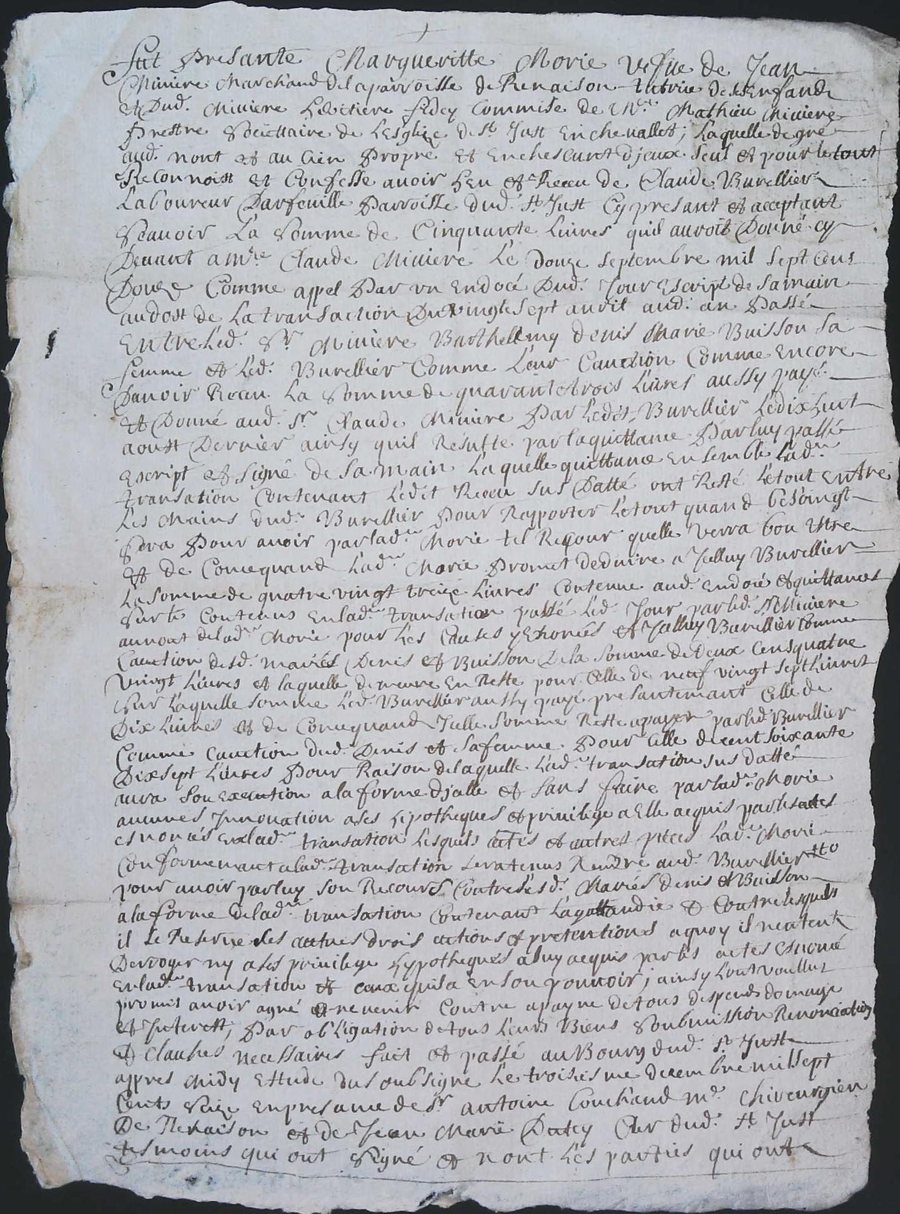 fut presante Margueritte Morie vefue de Jean
Miniere Marchand de la parroisse de Renaison tutrice de ses enfands
et dud. Miniere heritiere fidey commise de Mre. Mathieu Miniere
prestre societtaire de Lesglize de St Just en chevallet, laquelle de gré
aud. nom et au sien propre et en chescunt djeux seul et pour le tout
Reconnoist et Confesse avoir heu et Receu de Claude Burellier
Laboureur Darfeuille parroisse dud. St Just Cy presant et acceptant
Scavoir La Somme de Cinquante Livres quil auroit Donné cy
Devant a Mre Claude Miniere Le douze septembre mil sept cens
Douze Comme appel par un Endocé Dud. Jour Escript de sa main
au dost de La transaction Du vingt sept avril aud. an passé
Entre Led. Sr. Miniere Barthellemy denis Marie Buisson sa
femme et Led. Burellier Comme Leur Caution Comme encore
Davoir Receu La Somme de quarante trois Livres aussy payé
et Donné aud. Sr. Claude Miniere par Ledit Burellier Le dix huit
aoust Dernier ainsy quil Resulte par la quittance par luy passé
Escript et Signé de Sa main Laquelle quittance Ensemble Lad.
transation Contenant Ledit Receu sus datté ont Resté Le tout Entre
Les Mains dud. Burellier pour Rapporter Le tout quand besoingt
Sera pour avoir par lad. Morie tel Recour quelle verra bon estre
et de Concequand Lad. Morie promet dedüire a Jelluy Burellier
La somme de quatre vingt treize Livres Contenue aud. endocé et quittances
Sur le Contenus en lad. transation passé led. Jour par led. Sr Miniere
au nom de lad. Morie pour Les Causes y Enoncés et Jelluy Burellier comme
Caution desd. mariés Denis et Buisson De la somme de Deux Cens quatre
vingt Livres et laquelle demeure En Reste pour Celle de neuf vingt sept Livres
Sur Laquelle somme Led. Burellier aussy payé presantement Celle de
Dix Livres et de Concequand Jelle Somme Reste a payer par led. Burellier
Comme Caution dud. Denis et Sa femme pour Celle de cent soixante
Dix sept Livres pour Raison de laquelle Lad. transation sus datté
aura son execution a la forme djelle et sans faire par lad. Morie
aucunes Jnnovation a ses hypotheques et privilege a Elle acquis par les actes
esnoncés en lad. transation Lesquels actes et autres pieces Lad. Morie
Conformement a lad. transation sera tenus Rendre aud. Burellier
pour avoir par luy son Recours Contre lesd. Mariés denis et Buisson
a la forme de lad. transation Contenant La garandie et Contre lesquels
il se Reserve Ses autres drois actions et pretentions a quoy il n'entent
Deroger ny a ses privilege hypotheques a luy acquis par les actes Esnoncé
En lad. transation et ceux quis a En son pouvoir; ainsy Lont voullut
promis avoir agré et ne venir Contre a payne de tous despends domage
et Jnterest, par obligation de tous Leurs Biens Soubmission Renonciation
et Clauses necessaires fait et passé au Bourg dud. St Just
appres Midy Estude du soubsigne Le troisiesme decembre mil sept
Cents Seize en presance de Sr. Antoine Couchand Me. Chirurgien
De Renaison et de Jean Marie Clerc dud. St Just
tesmoins qui ont Signé et nont Les parties qui ont